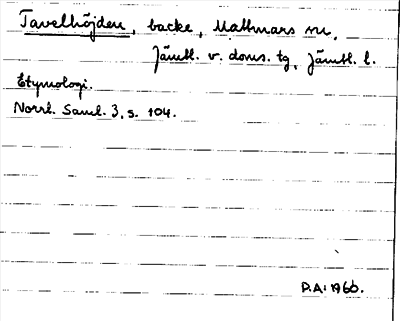 Tavelhöjden, backe, Mattmars sn,
Jämtl. v. doms. tg, Jämtl. l.
Etymologi.
Norrl. Saml. 3, s. 104.
D.A. 1960.